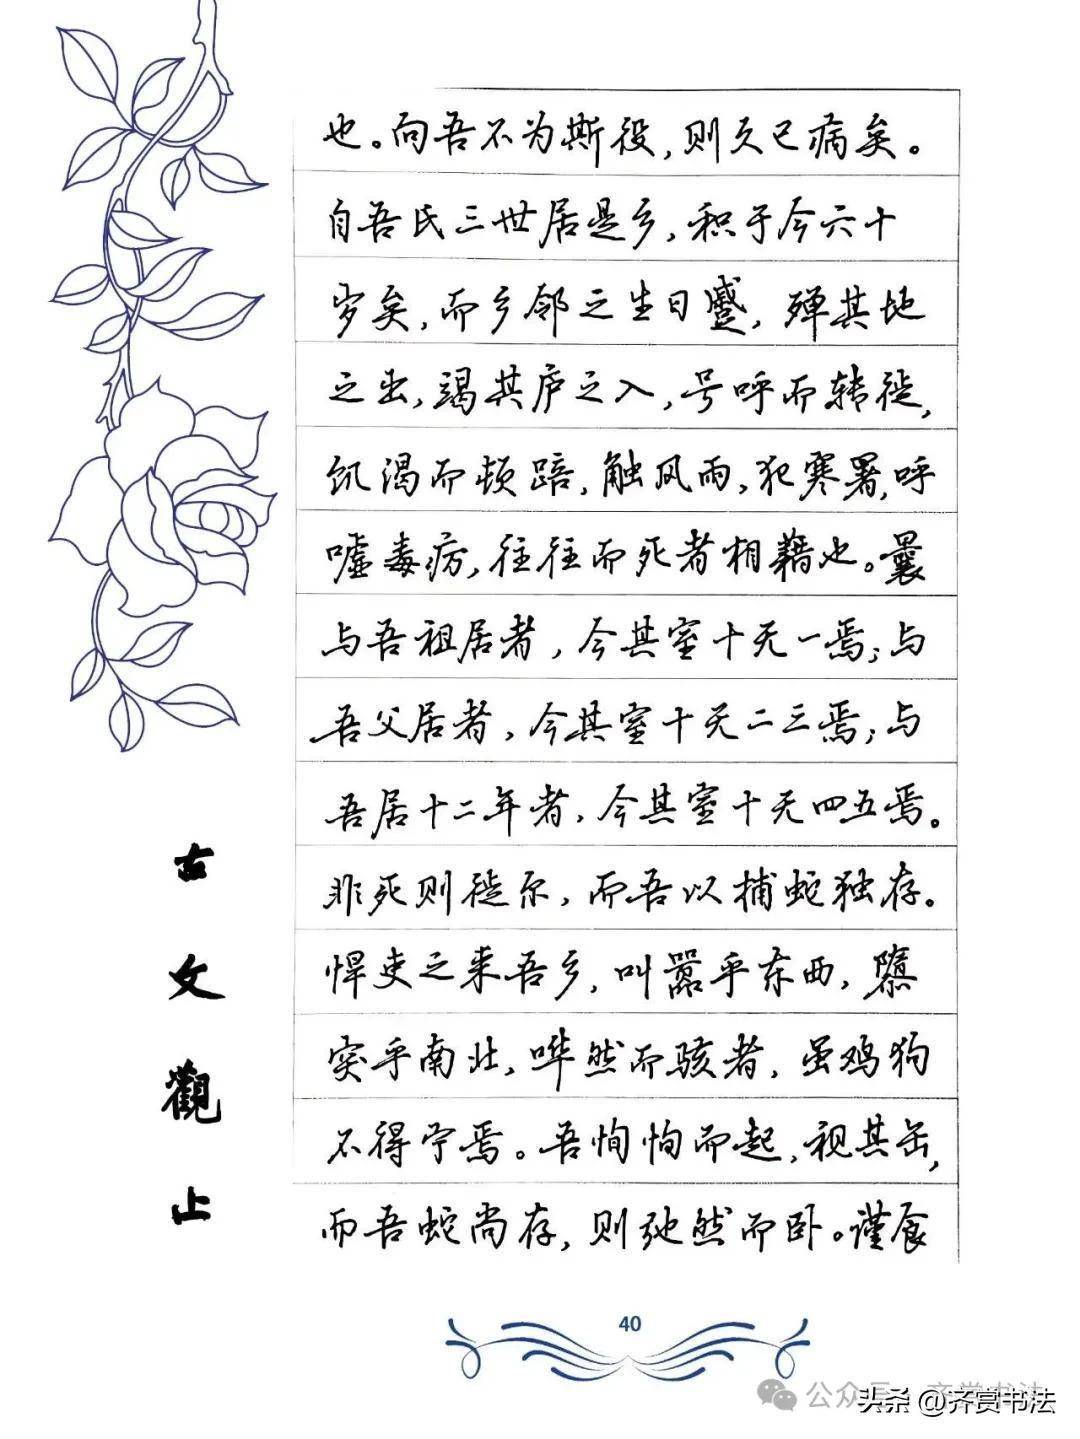 也。向吾不为斯役，则久已病矣。
自吾氏三世居是乡，积于今六十
岁矣，而乡邻之生日蹙，殚其地
之出，竭其庐之入，号呼而转徙，
饥渴而顿踣，触风雨，犯寒暑，呼
嘘毒疠，往往而死者相藉也。曩
与吾祖居者，今其室十无一焉；与
吾父居者，今其室十无二三焉；与
吾居十二年者，今其室十无四五焉。
非死则徙尔，而吾以捕蛇独存。
悍吏之来吾乡，叫嚣乎东西，隳
突乎南北，哗然而骇者，虽鸡狗
不得宁焉。吾恂恂而起，视其缶，
而吾蛇尚存，则弛然而卧。谨食
古文觀止
40
公众号 齐赏书法
头条 @齐赏书法